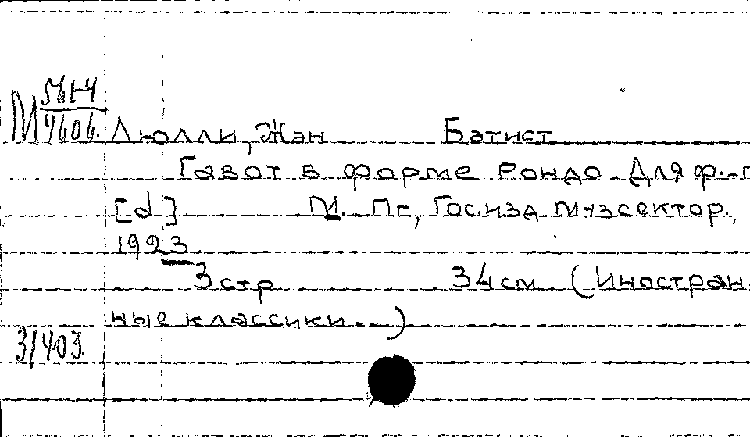 М 5614
9606. Люлли, Жан Батист
Гавот в форме Рондо. Для ф.-п
[d] М. Пг, Госизд Музсектор.,
1923
3 стр 34 см (Иностран
ные классики.)
31403.